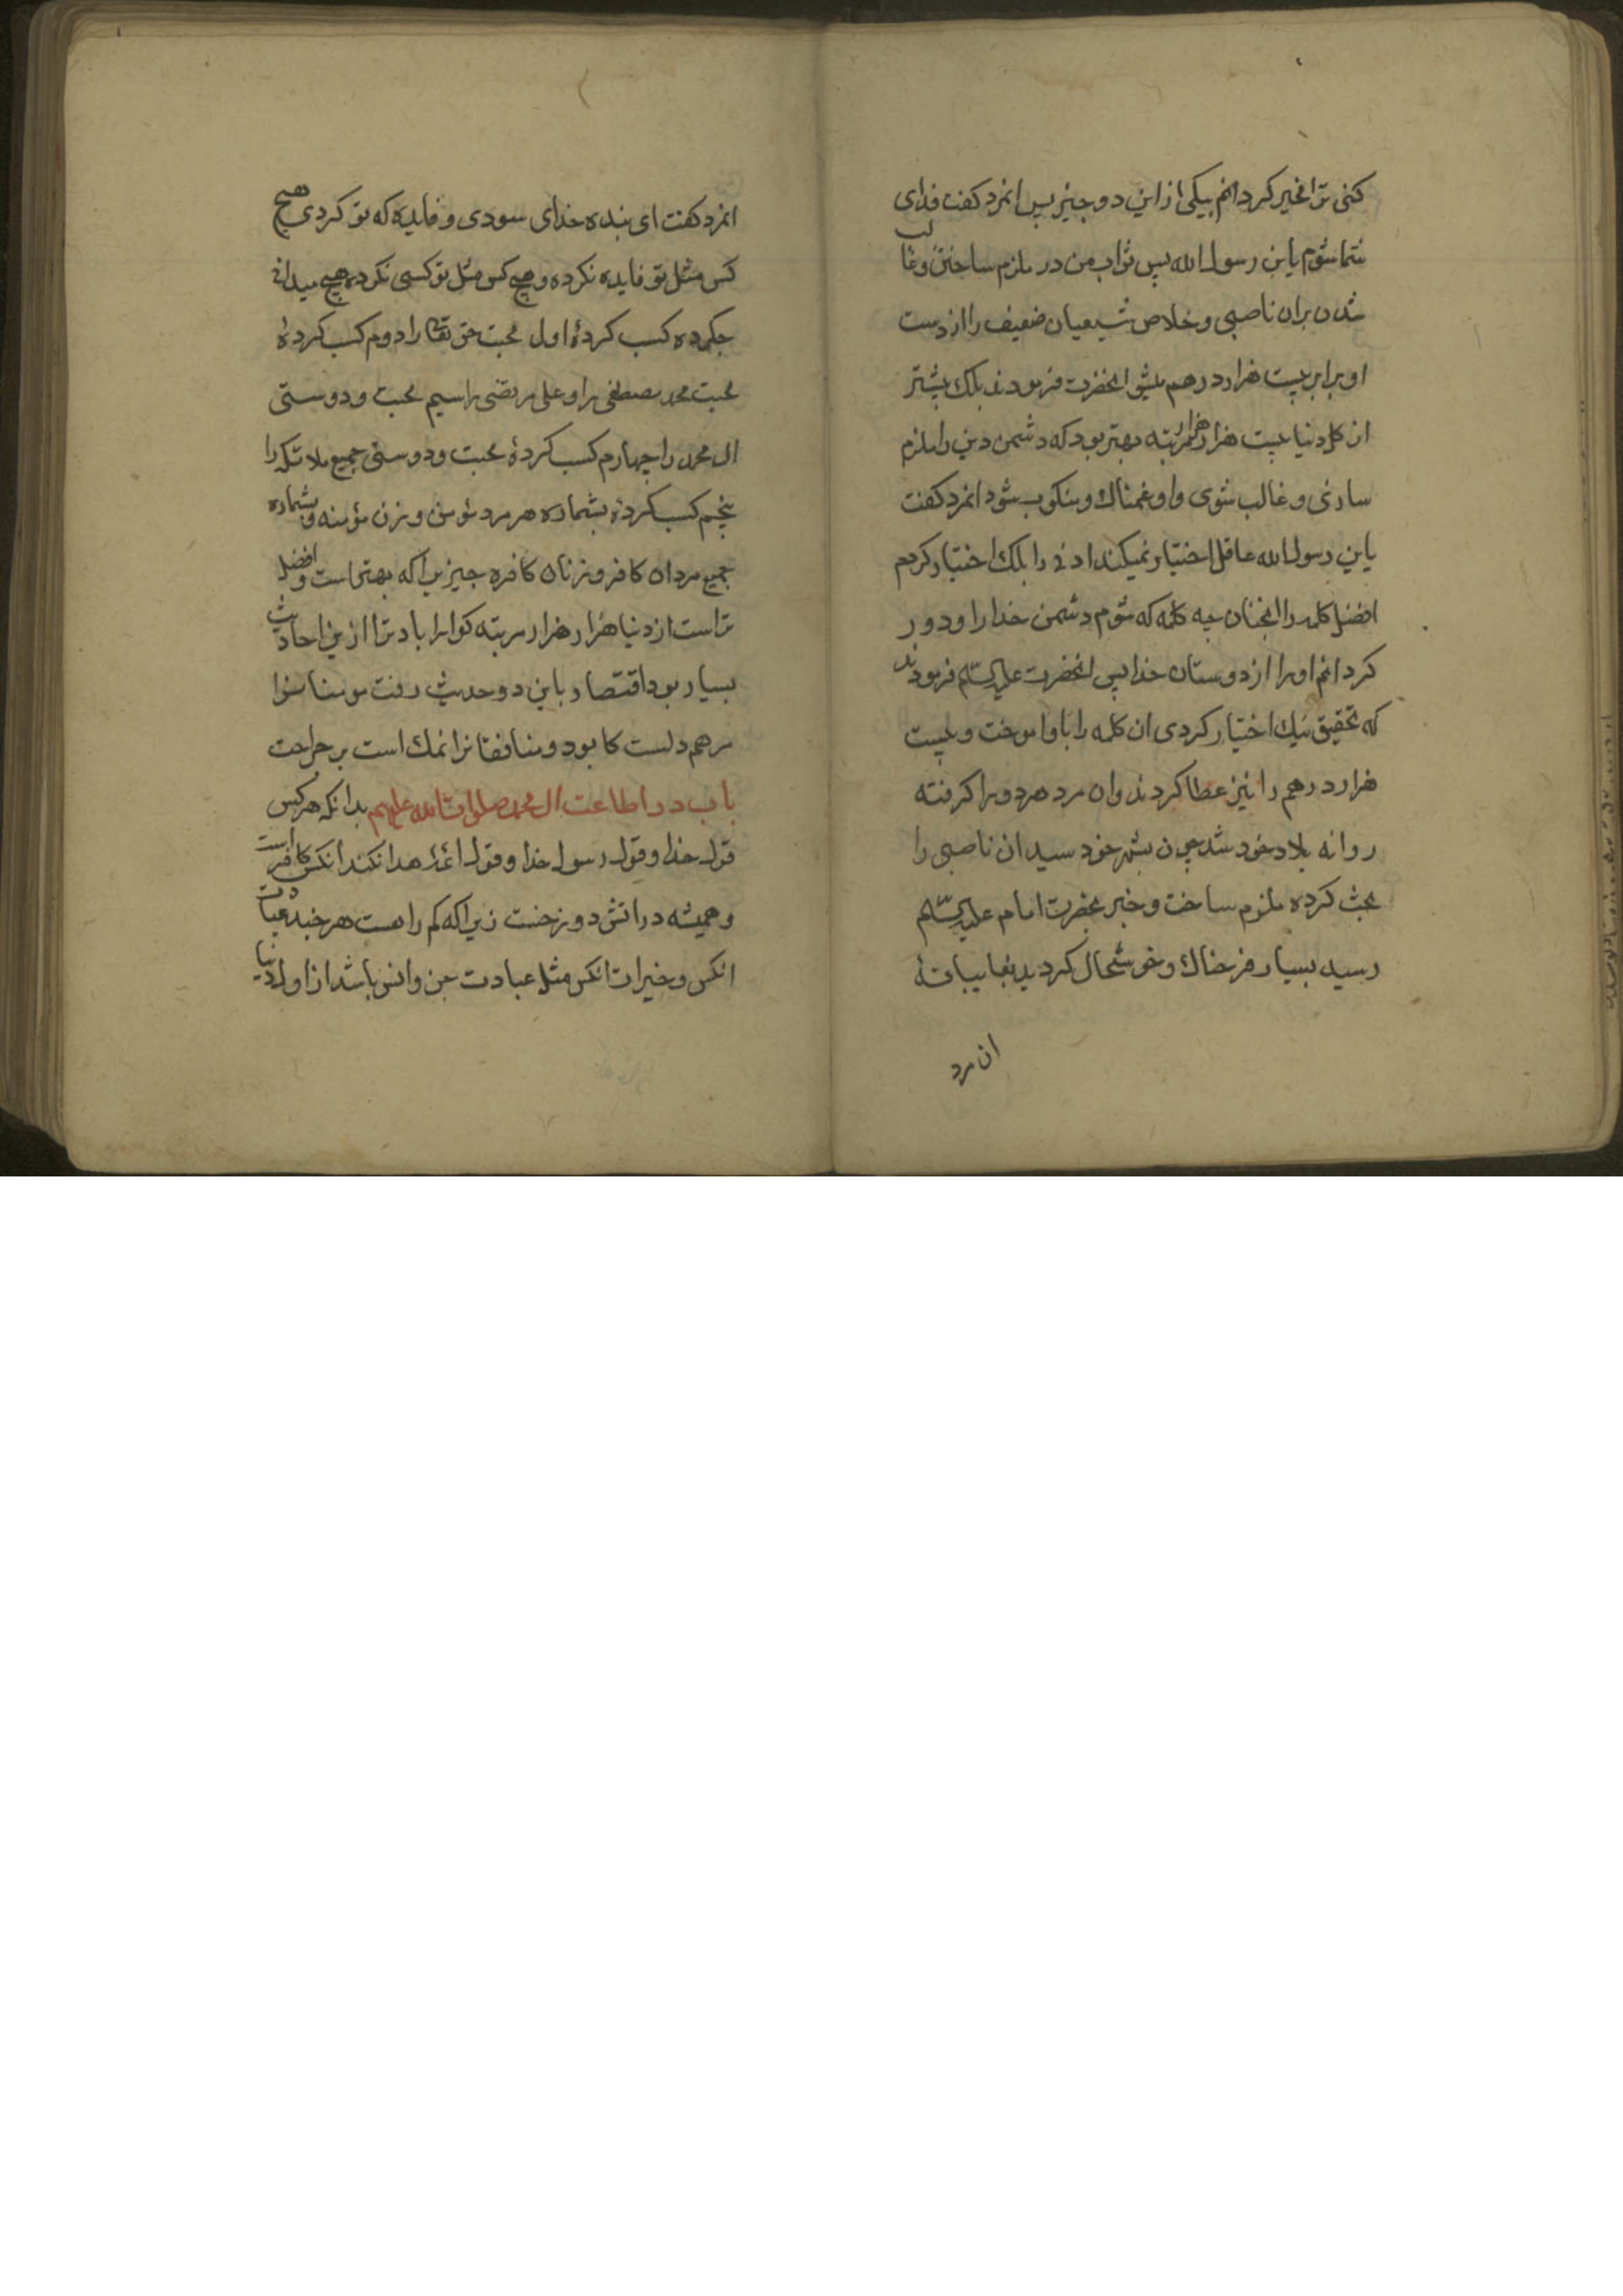 کنی ترا مخیر کردانم بیکی از این دو چیز پس انمرد کفت فدای
شما شوم یابن رسول الله پس ثواب من در ملزم ساختن و غالب
شدن بران ناصبی و خلاص شیعیان ضعیف را از دست
او برابر بیست هزار درهم میشو انحضرت فرمودند بلک بیشتر
از کل دنیا بیست هزار هزار مرتبه بهتر بود که دشمن دین را ملزم
سازی و غالب شوی و او غمناک و منکوب شود انمرد کفت
یابن رسول الله عاقل اختیار نمیکند ادنی را بلک اختیار کردم
افضل کلمه را انچنان کلمه که شوم دشمن خدا را و دور
کردانم او را از دوستان خدا پس انحضرت علیه السلم فرمودند
که تحقیق نیک اختیار کردی ان کلمه را باو اموخت و بیست
هزار درهم را نیز عطا کردند وان مرد هر دو را کرفته
روانه بلاد خود شد چون بشهر خود سید ان ناصبی را
بحث کرده ملزم ساخت و خبر بحضرت امام علیه السلم
رسید بسیار فرحناک و خوشحال کردید
ان مرد
انمرد کفت ای بنده خدای سودی و فایده که تو کردی هیچ
کس مثل تو فایده نکرده و هیچ کس مثل تو کسبی نکرده هیچ میدانی
چکرده کسب کردۀ اول محبت حق تعالی را دوم کسب کردۀ
محبت محمد مصطفی را و علی مرتضی را سیم محبت و دوستی
ال محمد را چهارم کسب کردۀ محبت و دوستی جمیع ملائکه را
پنجم کسب کردۀ بشماره هر مرد مؤمن و زن مؤمنه و بشماره
جمیع مردان کافر و زنان کافره چیزیرا که بهتر است و افضل
تراست از دنیا هزار هزار مرتبه کوارا باد ترا ازین احادیث
بسیار بود اقتصار باین دو حدیث رفت مومنانرا
مرهم دلست کابود و منافقانرا نمک است بر جراحت
باب در اطاعت ال محمد صلوات الله علیهم بدانکه هر کس
قول خدا و قول رسول خدا و قول ائمۀ هدا نکند انکس کافر است
و همیشه در اتش دوزخست زیراکه کم راهست هر چند عبادت
انکس و خیرات انکس مثل عبادت جن و انس باشد از اول دنیا